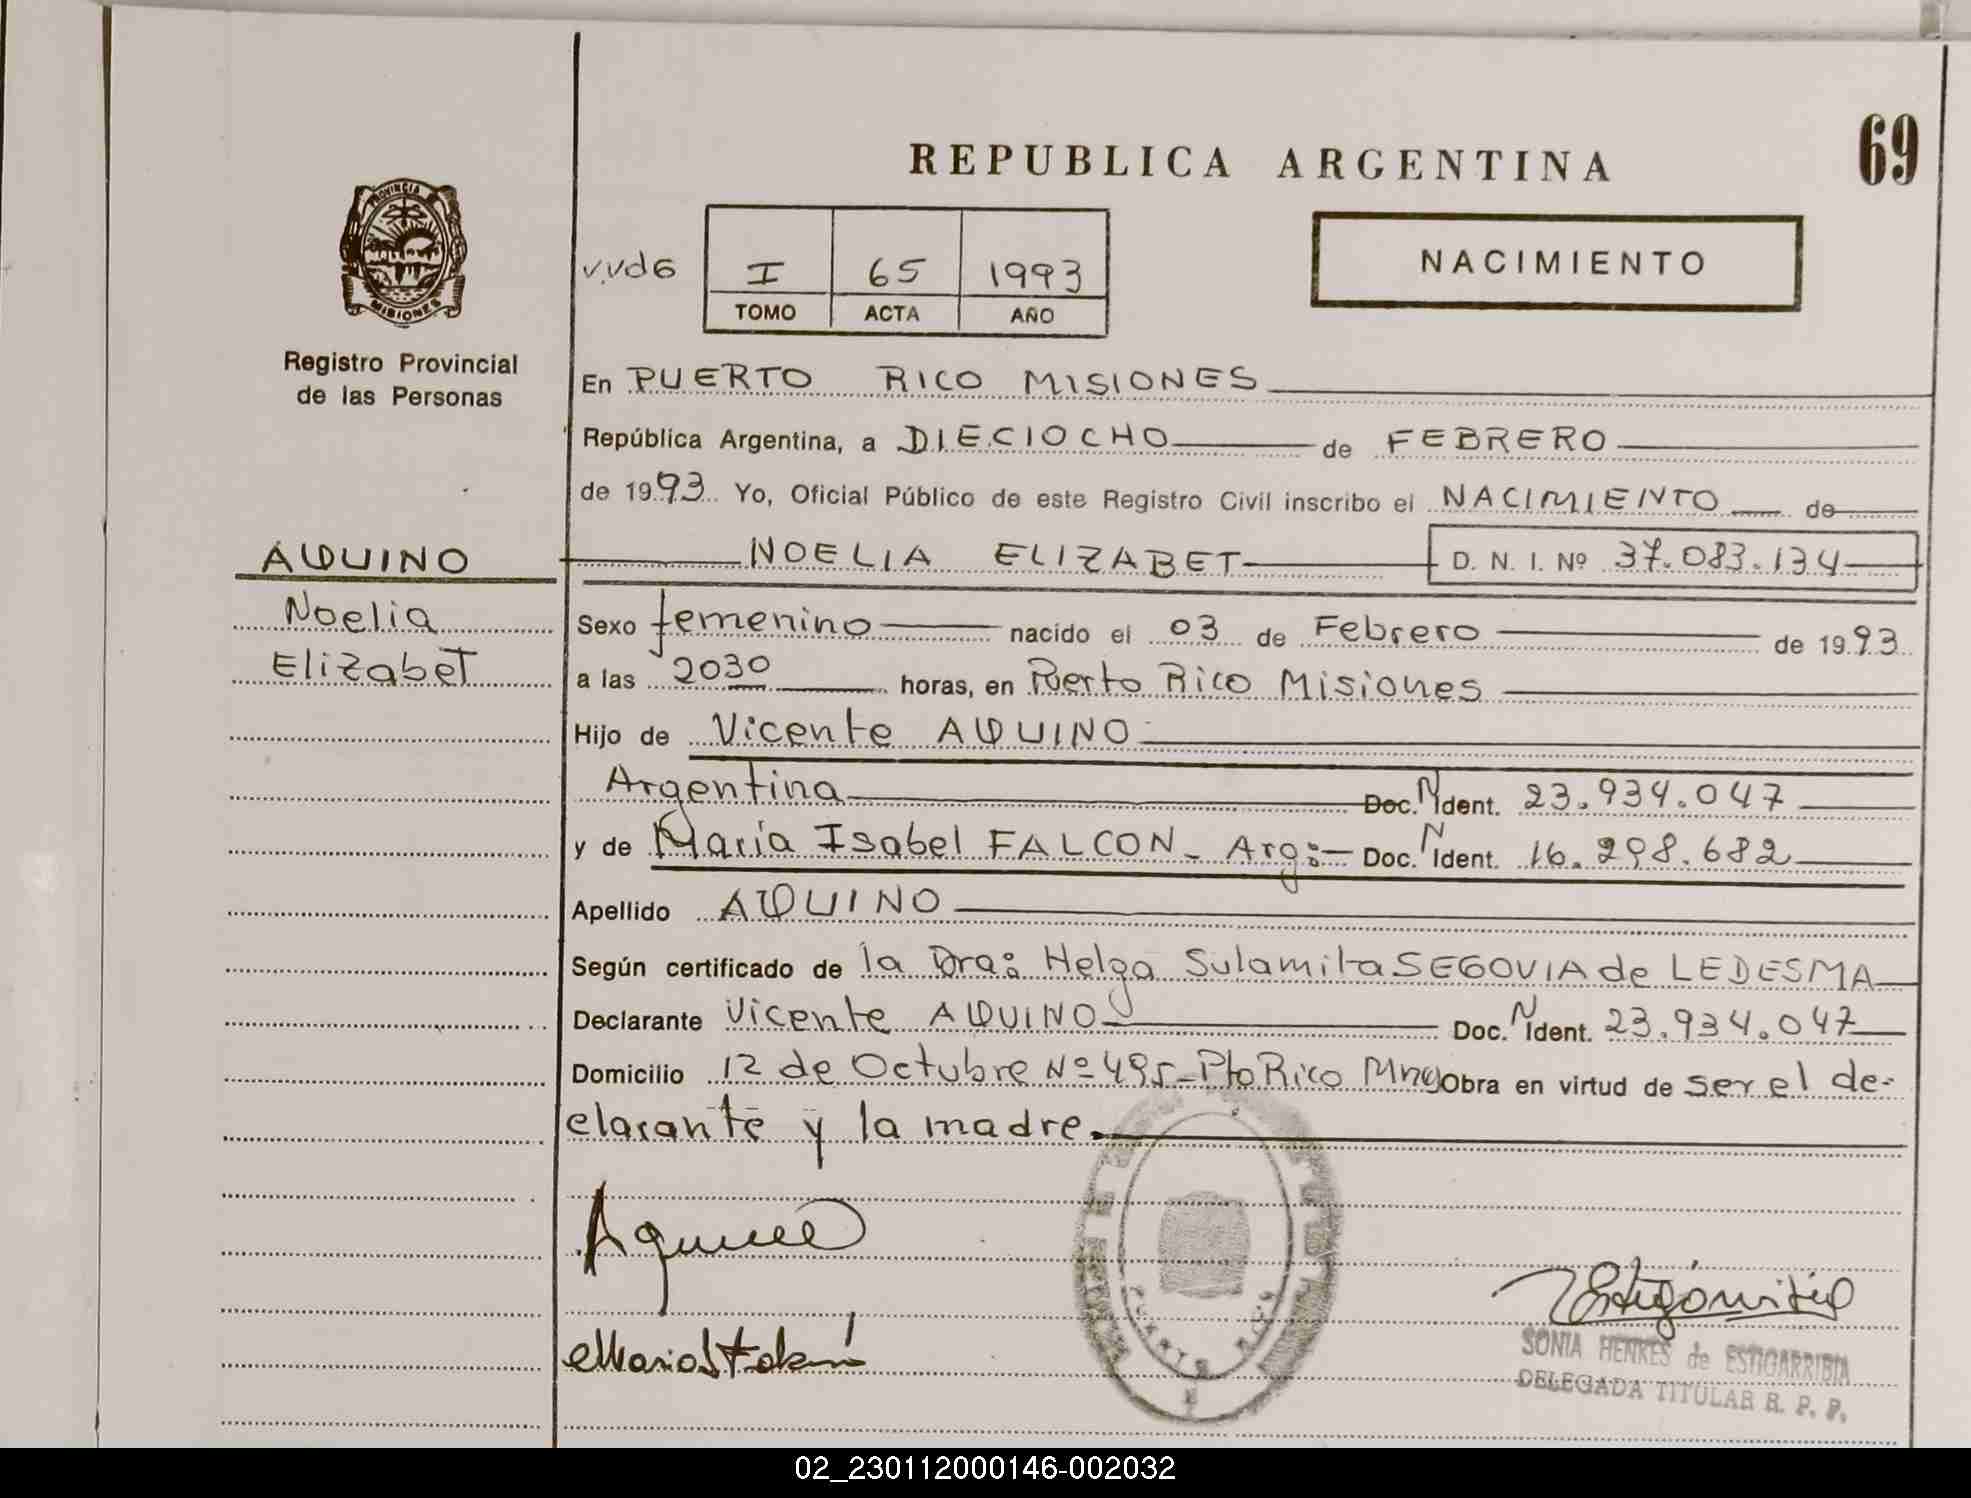 69
REPUBLICA ARGENTINA
NACIMIENTO
PROVINCIA
MISIONES
Registro Provincial
de las Personas
AQUINO
Noelia
Elizabet
I 65 1993
TOMO ACTA AÑO
En PUERTO RICO MISIONES
República Argentina, a DIECIOCHO de FEBRERO
de 1993 Yo, Oficial Público de este Registro Civil inscribo el NACIMIENTO de
NOELIA ELIZABET D. N. I. Nº 37.083.134
Sexo femenino nacido el 03 de Febrero de 1993
a las 2030 horas, en Puerto Rico Misiones
Hijo de Vicente AQUINO
Argentina Doc. N Ident. 23.934.047
y de María Isabel FALCON - Arg: Doc. N Ident. 16.298.682
Apellido AQUINO
Según certificado de la Dra: Helga Sulamita SEGOVIA de LEDESMA
Declarante Vicente AQUINO Doc. N Ident. 23.934.047
Domicilio 12 de Octubre Nº 495 - Pto Rico Mnes Obra en virtud de ser el de-
clarante y la madre.
PUERTO RICO
SONIA HENKES de ESTIGARRIBIA
DELEGADA TITULAR R. P. P.
02_230112000146-002032